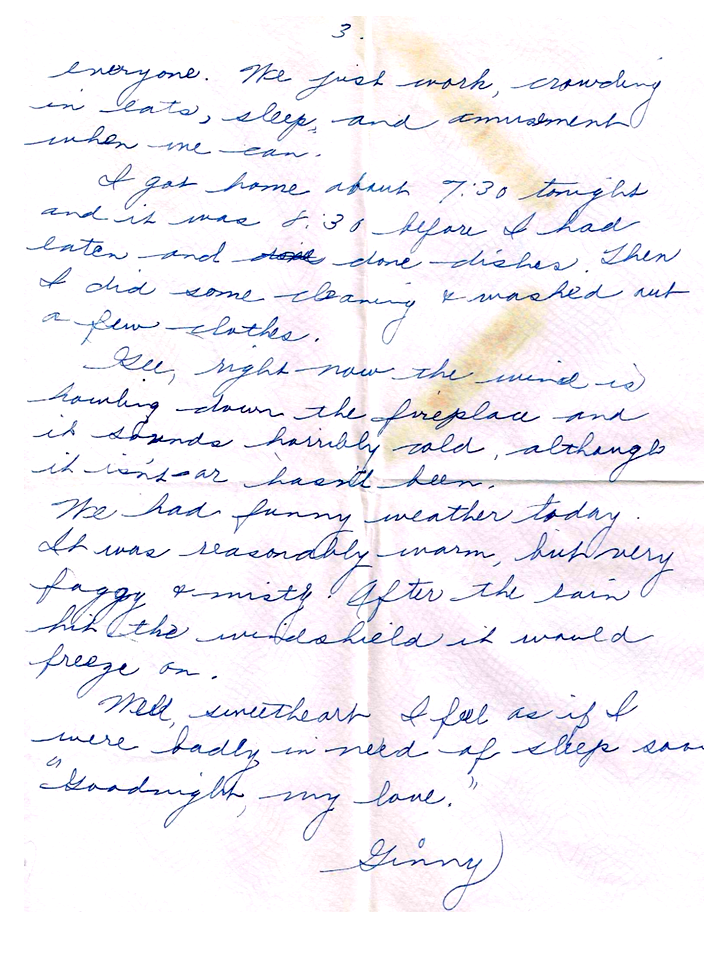 3.
everyone. We just work, crowding
in eats, sleep, and amusement
when we can.
I got home about 7:30 tonight
and it was 8:30 before I had
eaten and done dishes. Then
I did some cleaning & washed out
a few clothes.
Gee, right now the wind is
howling down the fireplace and
it sounds horribly cold, although
it isn't or hasn't been.
We had funny weather today.
It was reasonably warm, but very
foggy & misty. After the rain
hit the windshield it would
freeze on.
Well, sweetheart I feel as if I
were badly in need of sleep soo
"Goodnight, my love."
Ginny